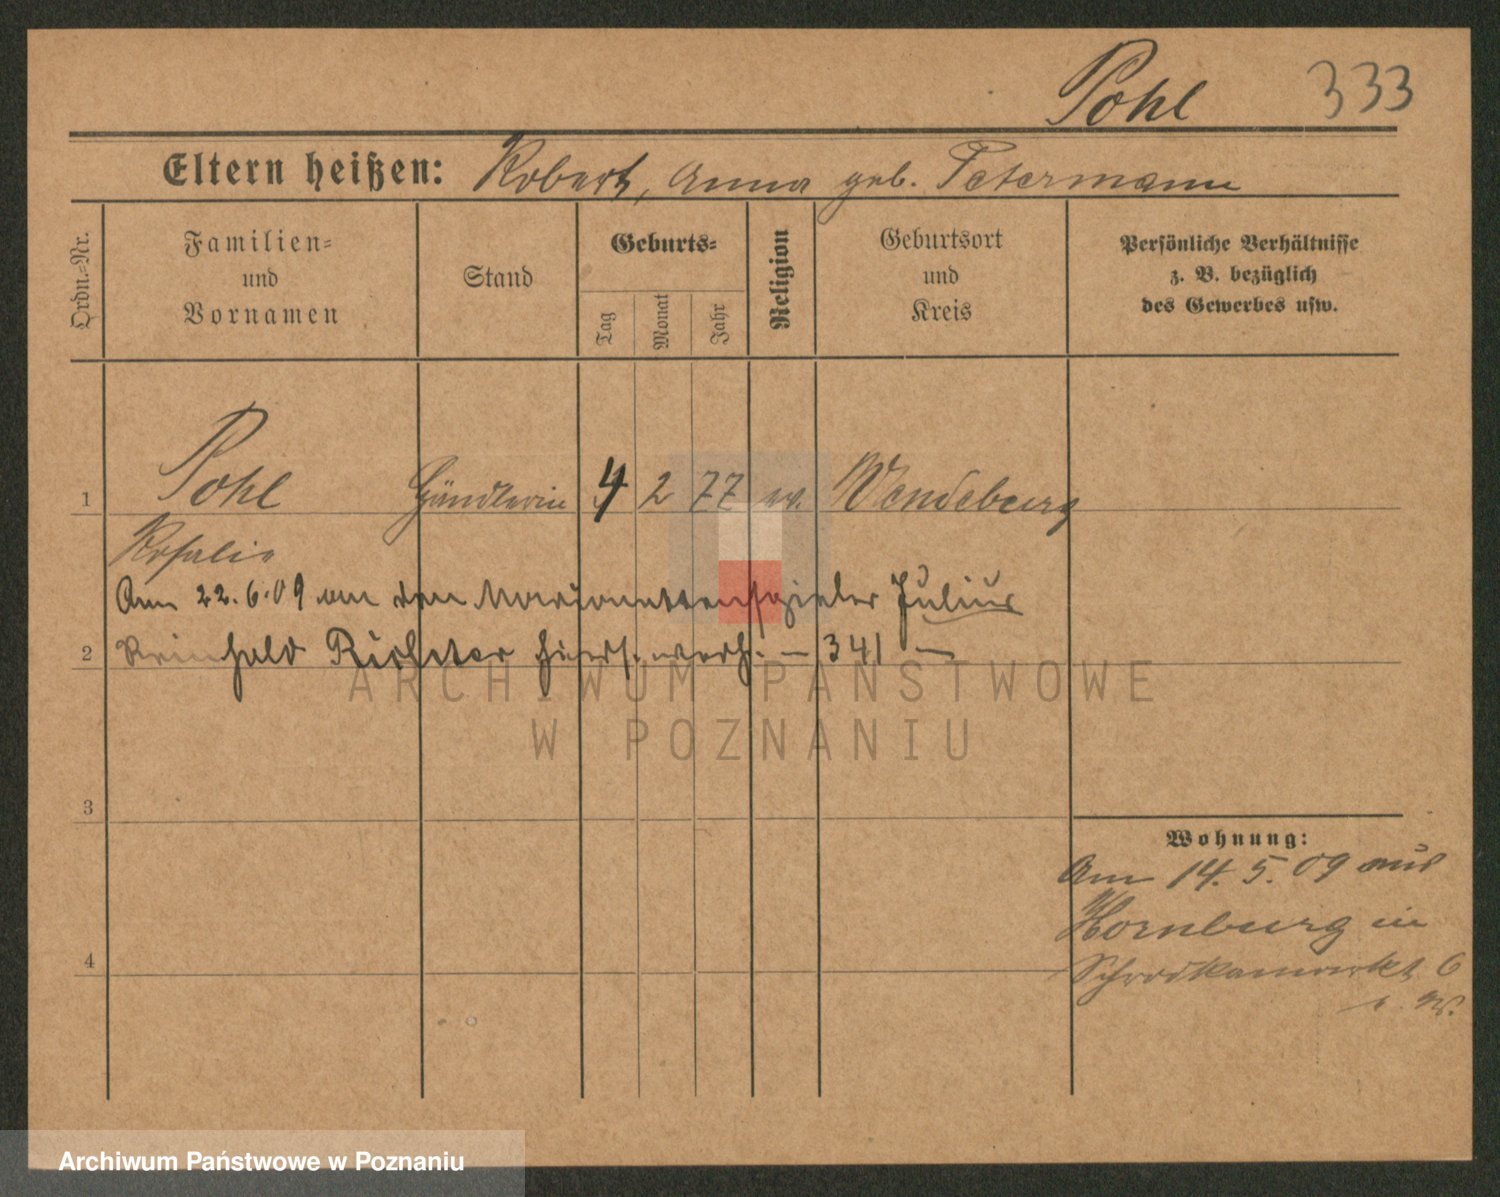 Pohl 333
Eltern heißen: Robert, Anna geb. Petermann
Ordn.=Nr.
Familien=
und
Vornamen
Stand
Geburts=
Tag
Monat
Jahr
Religion
Geburtsort
und
Kreis
Persönliche Verhältnisse
z. B. bezüglich
des Gewerbes usw.
1 Pohl Händlerin 4 2 77 ev. Wendeburg
Rosalie
Am 22.6.09 an den Marionettenspieler Julius
2 Reinhold Richter hiers. verh. — 341 —
ARCHIWUM PAŃSTWOWE
W POZNANIU
3
Wohnung:
Am 14. 5. 09 aus
Hornburg in
4
Schrodkamarkt 6
Archiwum Państwowe w Poznaniu